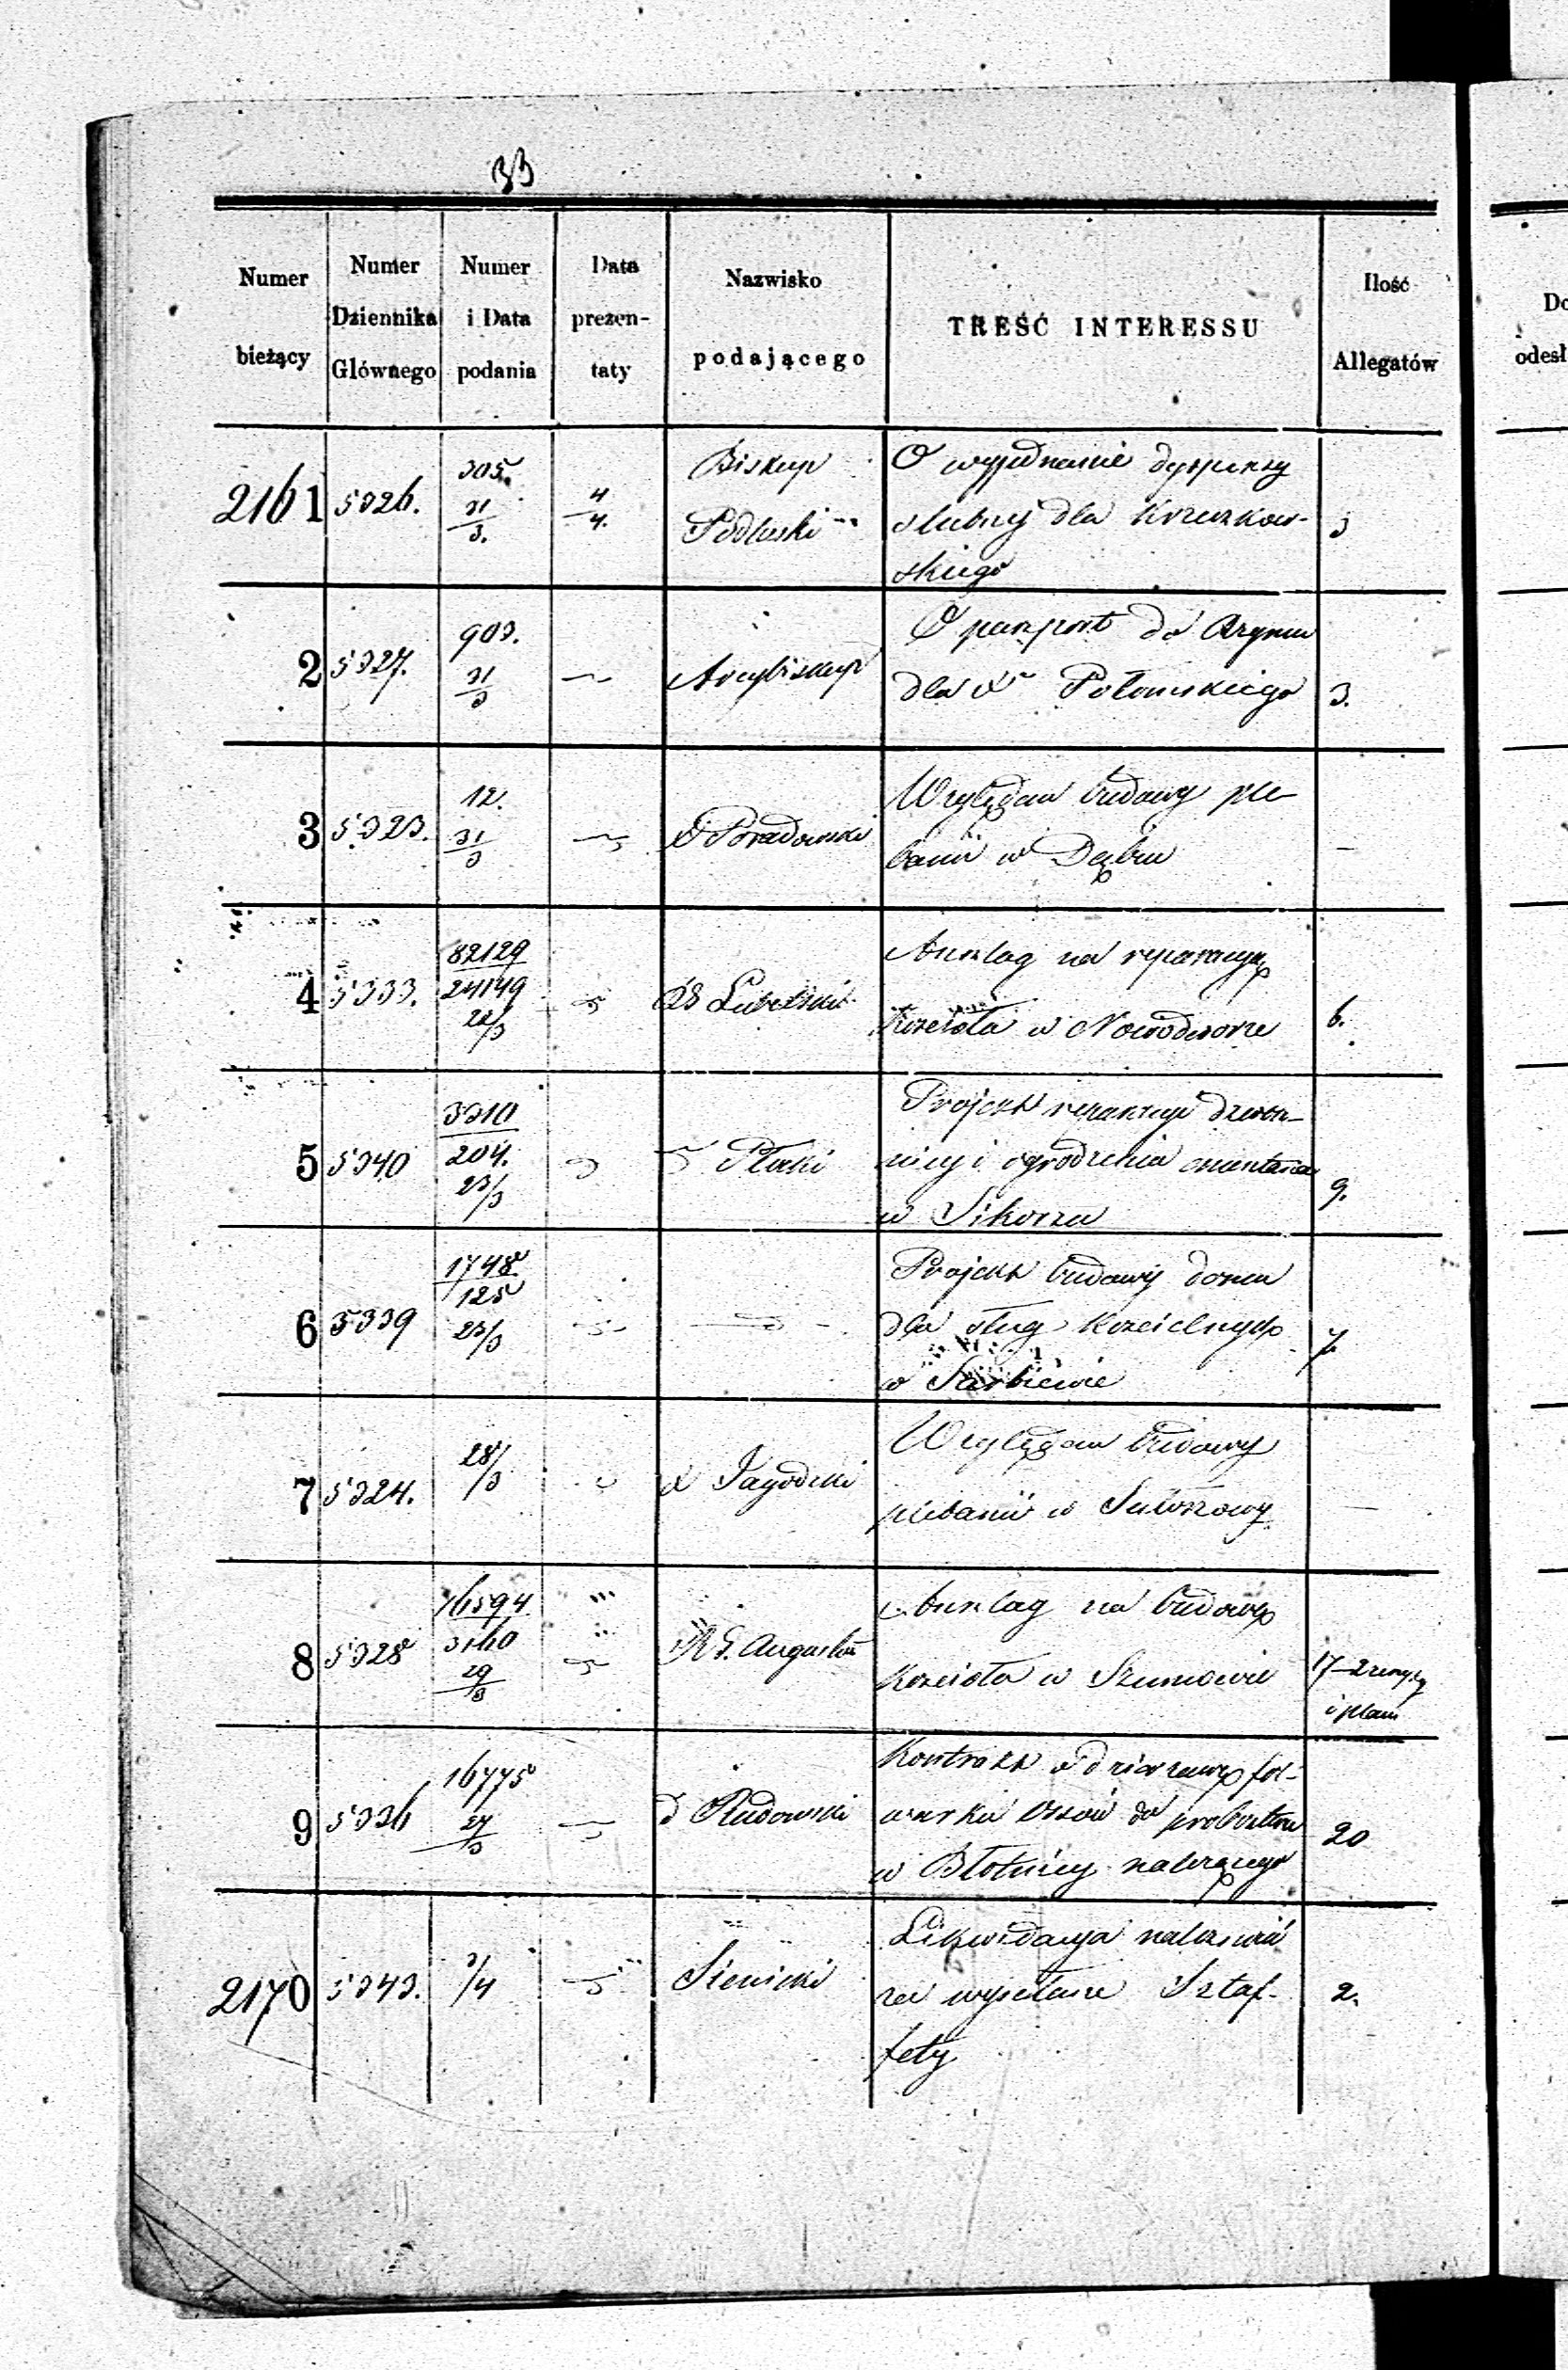 33
Numer bieżący | Numer Dziennika Głównego | Numer i Data podania | Data prezentaty | Nazwisko podającego | TREŚĆ INTERESSU | Ilość Allegatów
2161 | 5326. | 305. 31/3. | 4/4. | Biskup | O wyjednanie dyspensy
Podlaski | ślubnej dla Kruszkow- | 3
skiego
2 | 5327. | 903. 31/3 | Arcybiskup | O paszport do Rzymu
dla X Potomskiego | 3.
3 | 5323. | 12. 31/3 | X Poradowski | Względem budowy ple-
banii w Dębiu | —
4 | 5333. | 82129/24149 28/3 | RG Lubelski | Anszlag na reparacyę
Kościoła w Nowodworze | 6.
5 | 5340 | 3310/204. 23/3 | Płocki | Projekt reparacyi dzwon-
nicy i ogrodzenia cmentarza
w Sikorzu | 9.
6 | 5339 | 1748/125 23/3 | Projekt budowy domu
dla sług Kościelnych | 7.
w Sarbiewie
7 | 5324. | 28/3 | X Jagodzki | Względem budowy
plebanii w Sułoszowy | —
8 | 5328 | 76594/3160 29/3 | RG. Augustow | Anszlag na budowę
Kościoła w Szumowie | 17 – 2
i plan
9 | 5336 | 16775 27/3 | Rudowski | Kontrakt o dzierżawę fol-
warku Ossów do probostwa | 20
w Błotnicy należącego
2170 | 5343. | 3/4 | Sienicki | Likwidacya
za wysłanie Sztaf- | 2.
fety
Do
odesł